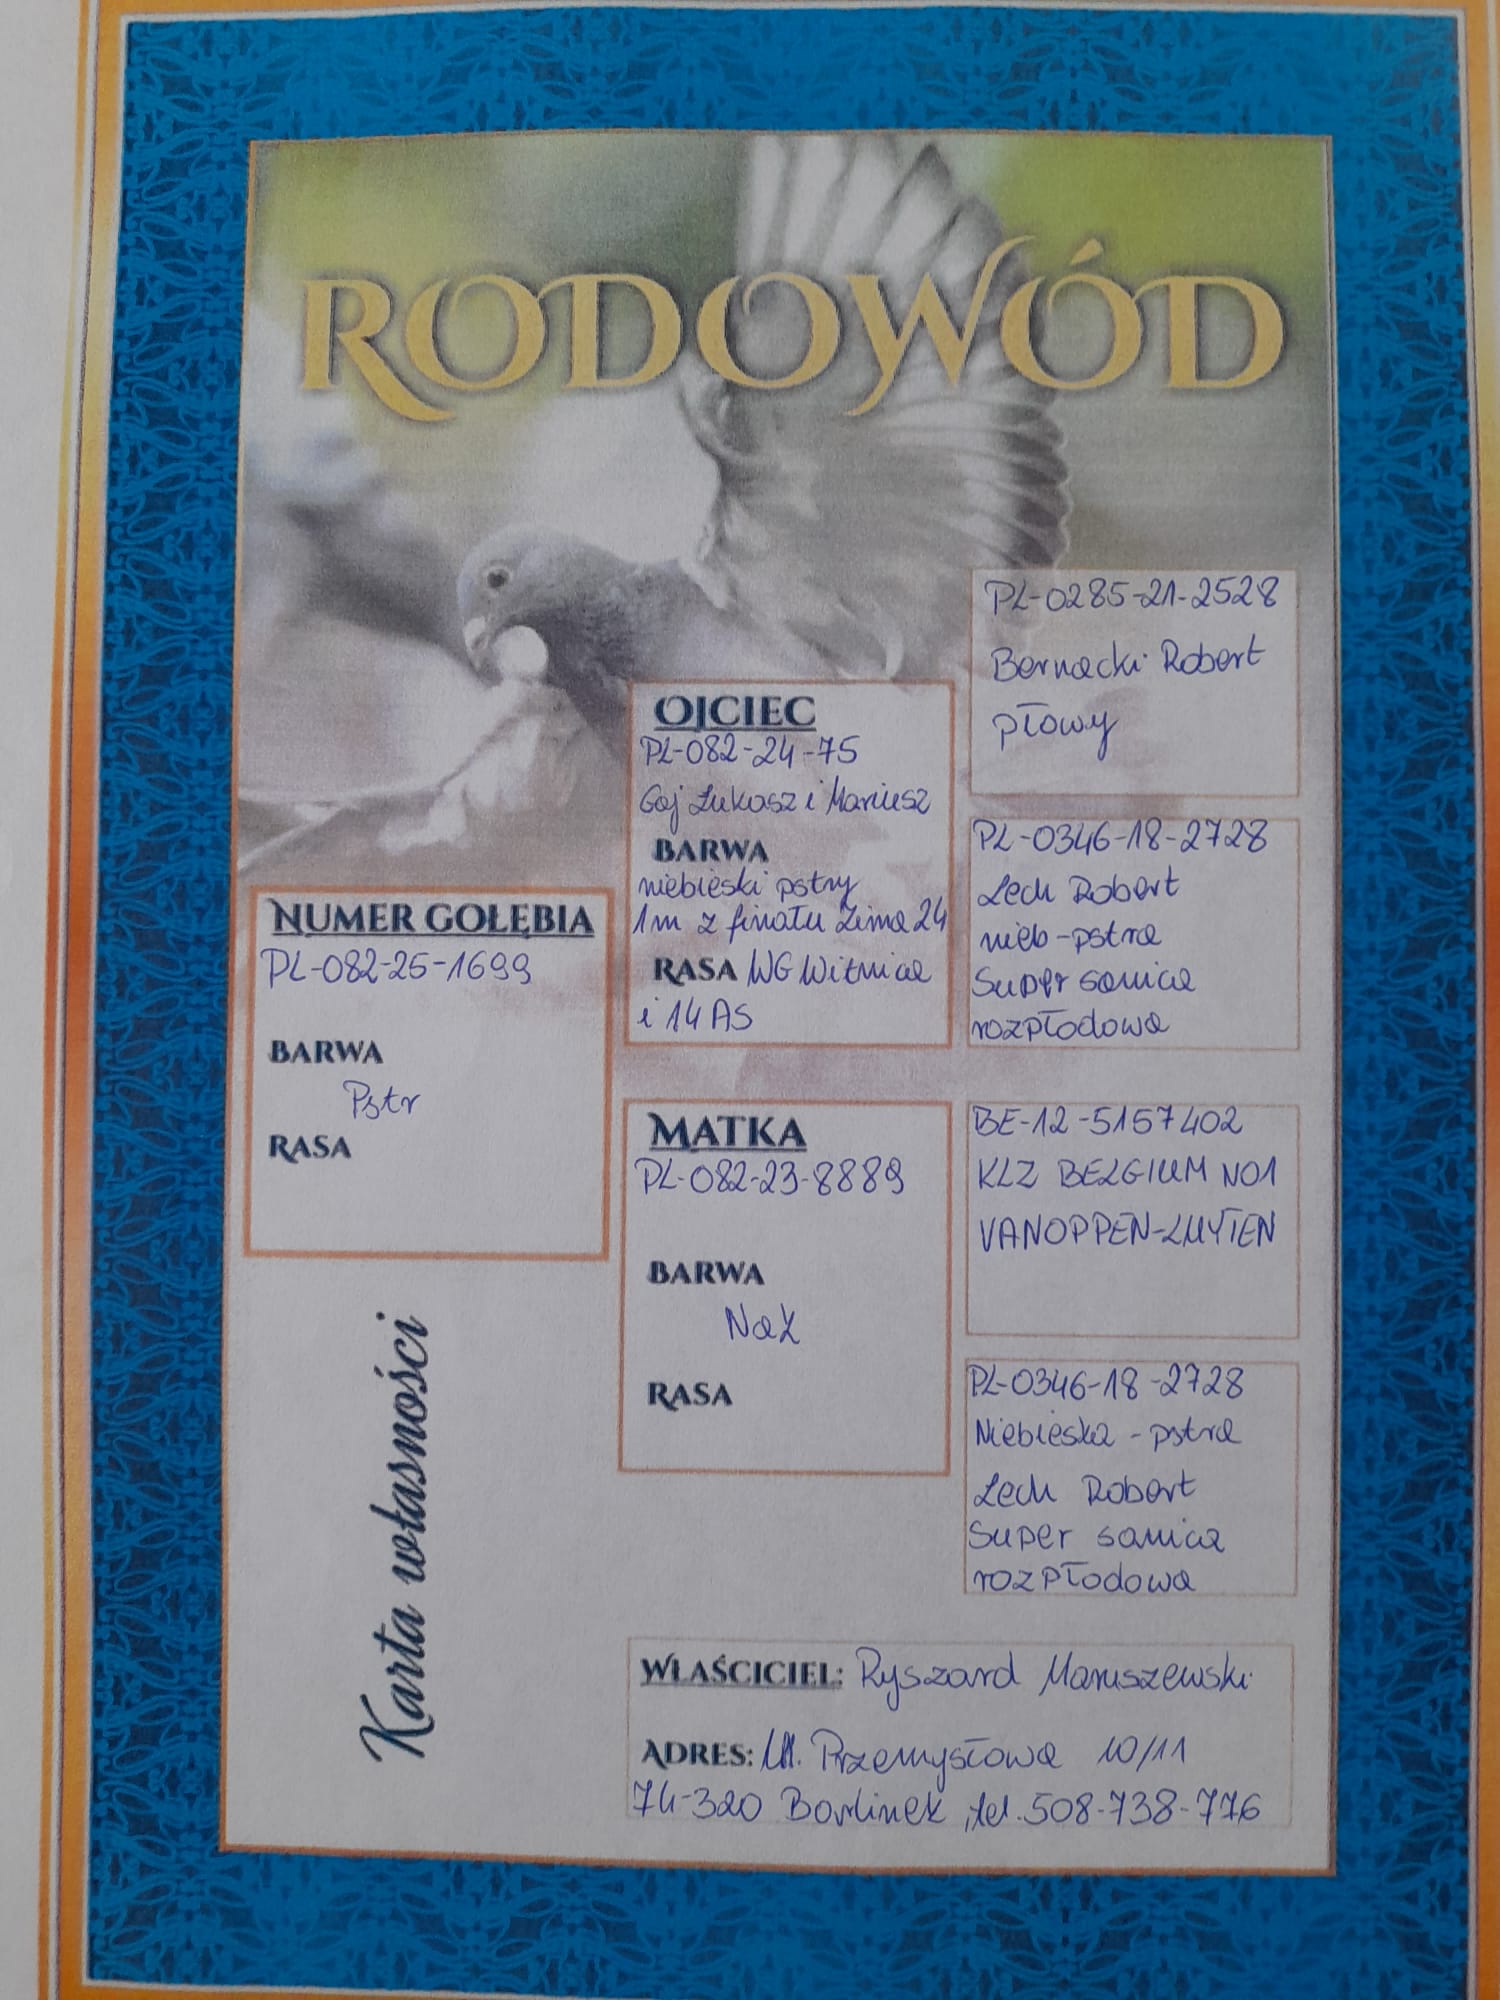 RODOWÓD
NUMER GOŁĘBIA
PL-082-25-1699
BARWA
Pstr
RASA
OJCIEC
PL-082-24-75
Gaj Łukasz i Mariusz
BARWA
niebieski pstry
1m z finału Zima 24
RASA WG Witnica
i 14 AS
MATKA
PL-082-23-8889
BARWA
Nak
RASA
PL-0285-21-2528
Bernacki Robert
płowy
PL-0346-18-2728
Lech Robert
nieb-pstra
Super samica
rozpłodowa
BE-12-5157402
KLZ BELGIUM NO1
VANOPPEN-LUYTEN
PL-0346-18-2728
Niebieska - pstra
Lech Robert
Super samica
rozpłodowa
Karta własności
WŁAŚCICIEL: Ryszard Maruszewski
ADRES: Ul. Przemysłowa 10/11
74-320 Barlinek, tel. 508-738-776